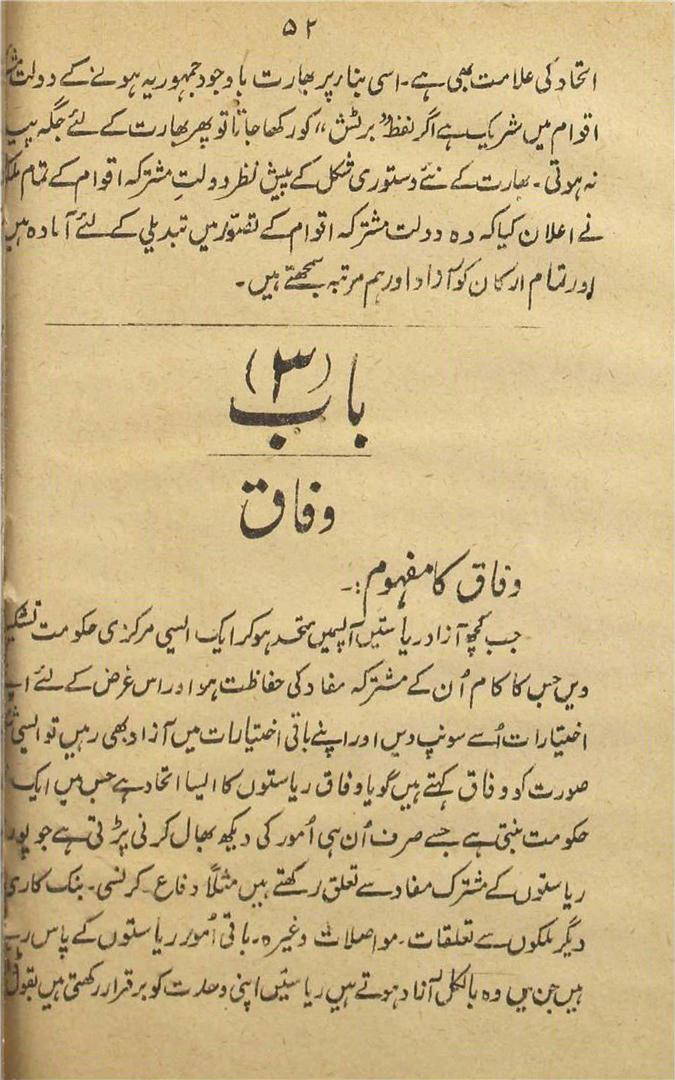 ۵۲
اتحاد کی علامت بھی ہے۔ اسی بنا پر بھارت باوجود جمہوریہ ہونے کے دولت
اقوام میں شریک ہے اگر لفظ "برٹش" کو رکھا جاتا تو پھر بھارت کے لئے جگہ
نہ ہوتی۔ بھارت کے نئے دستوری شکل کے پیش نظر دولتِ مشترکہ اقوام کے تمام
نے اعلان کیا کہ وہ دولت مشترکہ اقوام کے تصوّر میں تبدیلی کے لئے آمادہ ہیں
اور تمام ارکان کو آزاد اور ہم مرتبہ سمجھتے ہیں۔
باب (۳)
وفاق
وفاق کا مفہوم :۔
جب کچھ آزاد ریاستیں آپسمیں متحد ہو کر ایک ایسی مرکزی حکومت
دیں جس کا کام اُن کے مشترکہ مفاد کی حفاظت ہو اور اس غرض کے لئے
اختیارات اُسے سونپ دیں اور اپنے باقی اختیارات میں آزاد بھی رہیں تو ایسی
صورت کو وفاق کہتے ہیں گویا وفاق ریاستوں کا ایسا اتحاد ہے جس میں ایک
حکومت بنتی ہے جسے صرف اُن ہی اُمور کی دیکھ بھال کرنی پڑتی ہے جو
ریاستوں کے مشترک مفاد سے تعلق رکھتے ہیں مثلاً دفاع۔ کرنسی۔ بنک کاری
دیگر ملکوں سے تعلقات۔ مواصلات وغیرہ۔ باقی اُمور ریاستوں کے پاس
ہیں جن میں وہ بالکل آزاد ہوتے ہیں ریاستیں اپنی وحدت کو برقرار رکھتی ہیں بقول